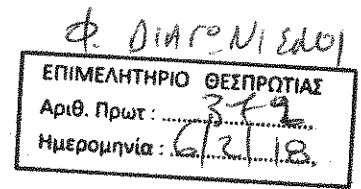 Φ. ΔΙΑΓΩΝΙΣΜΟΙ
ΕΠΙΜΕΛΗΤΗΡΙΟ ΘΕΣΠΡΩΤΙΑΣ
Αριθ. Πρωτ : 372
Ημερομηνία : 6/2/18